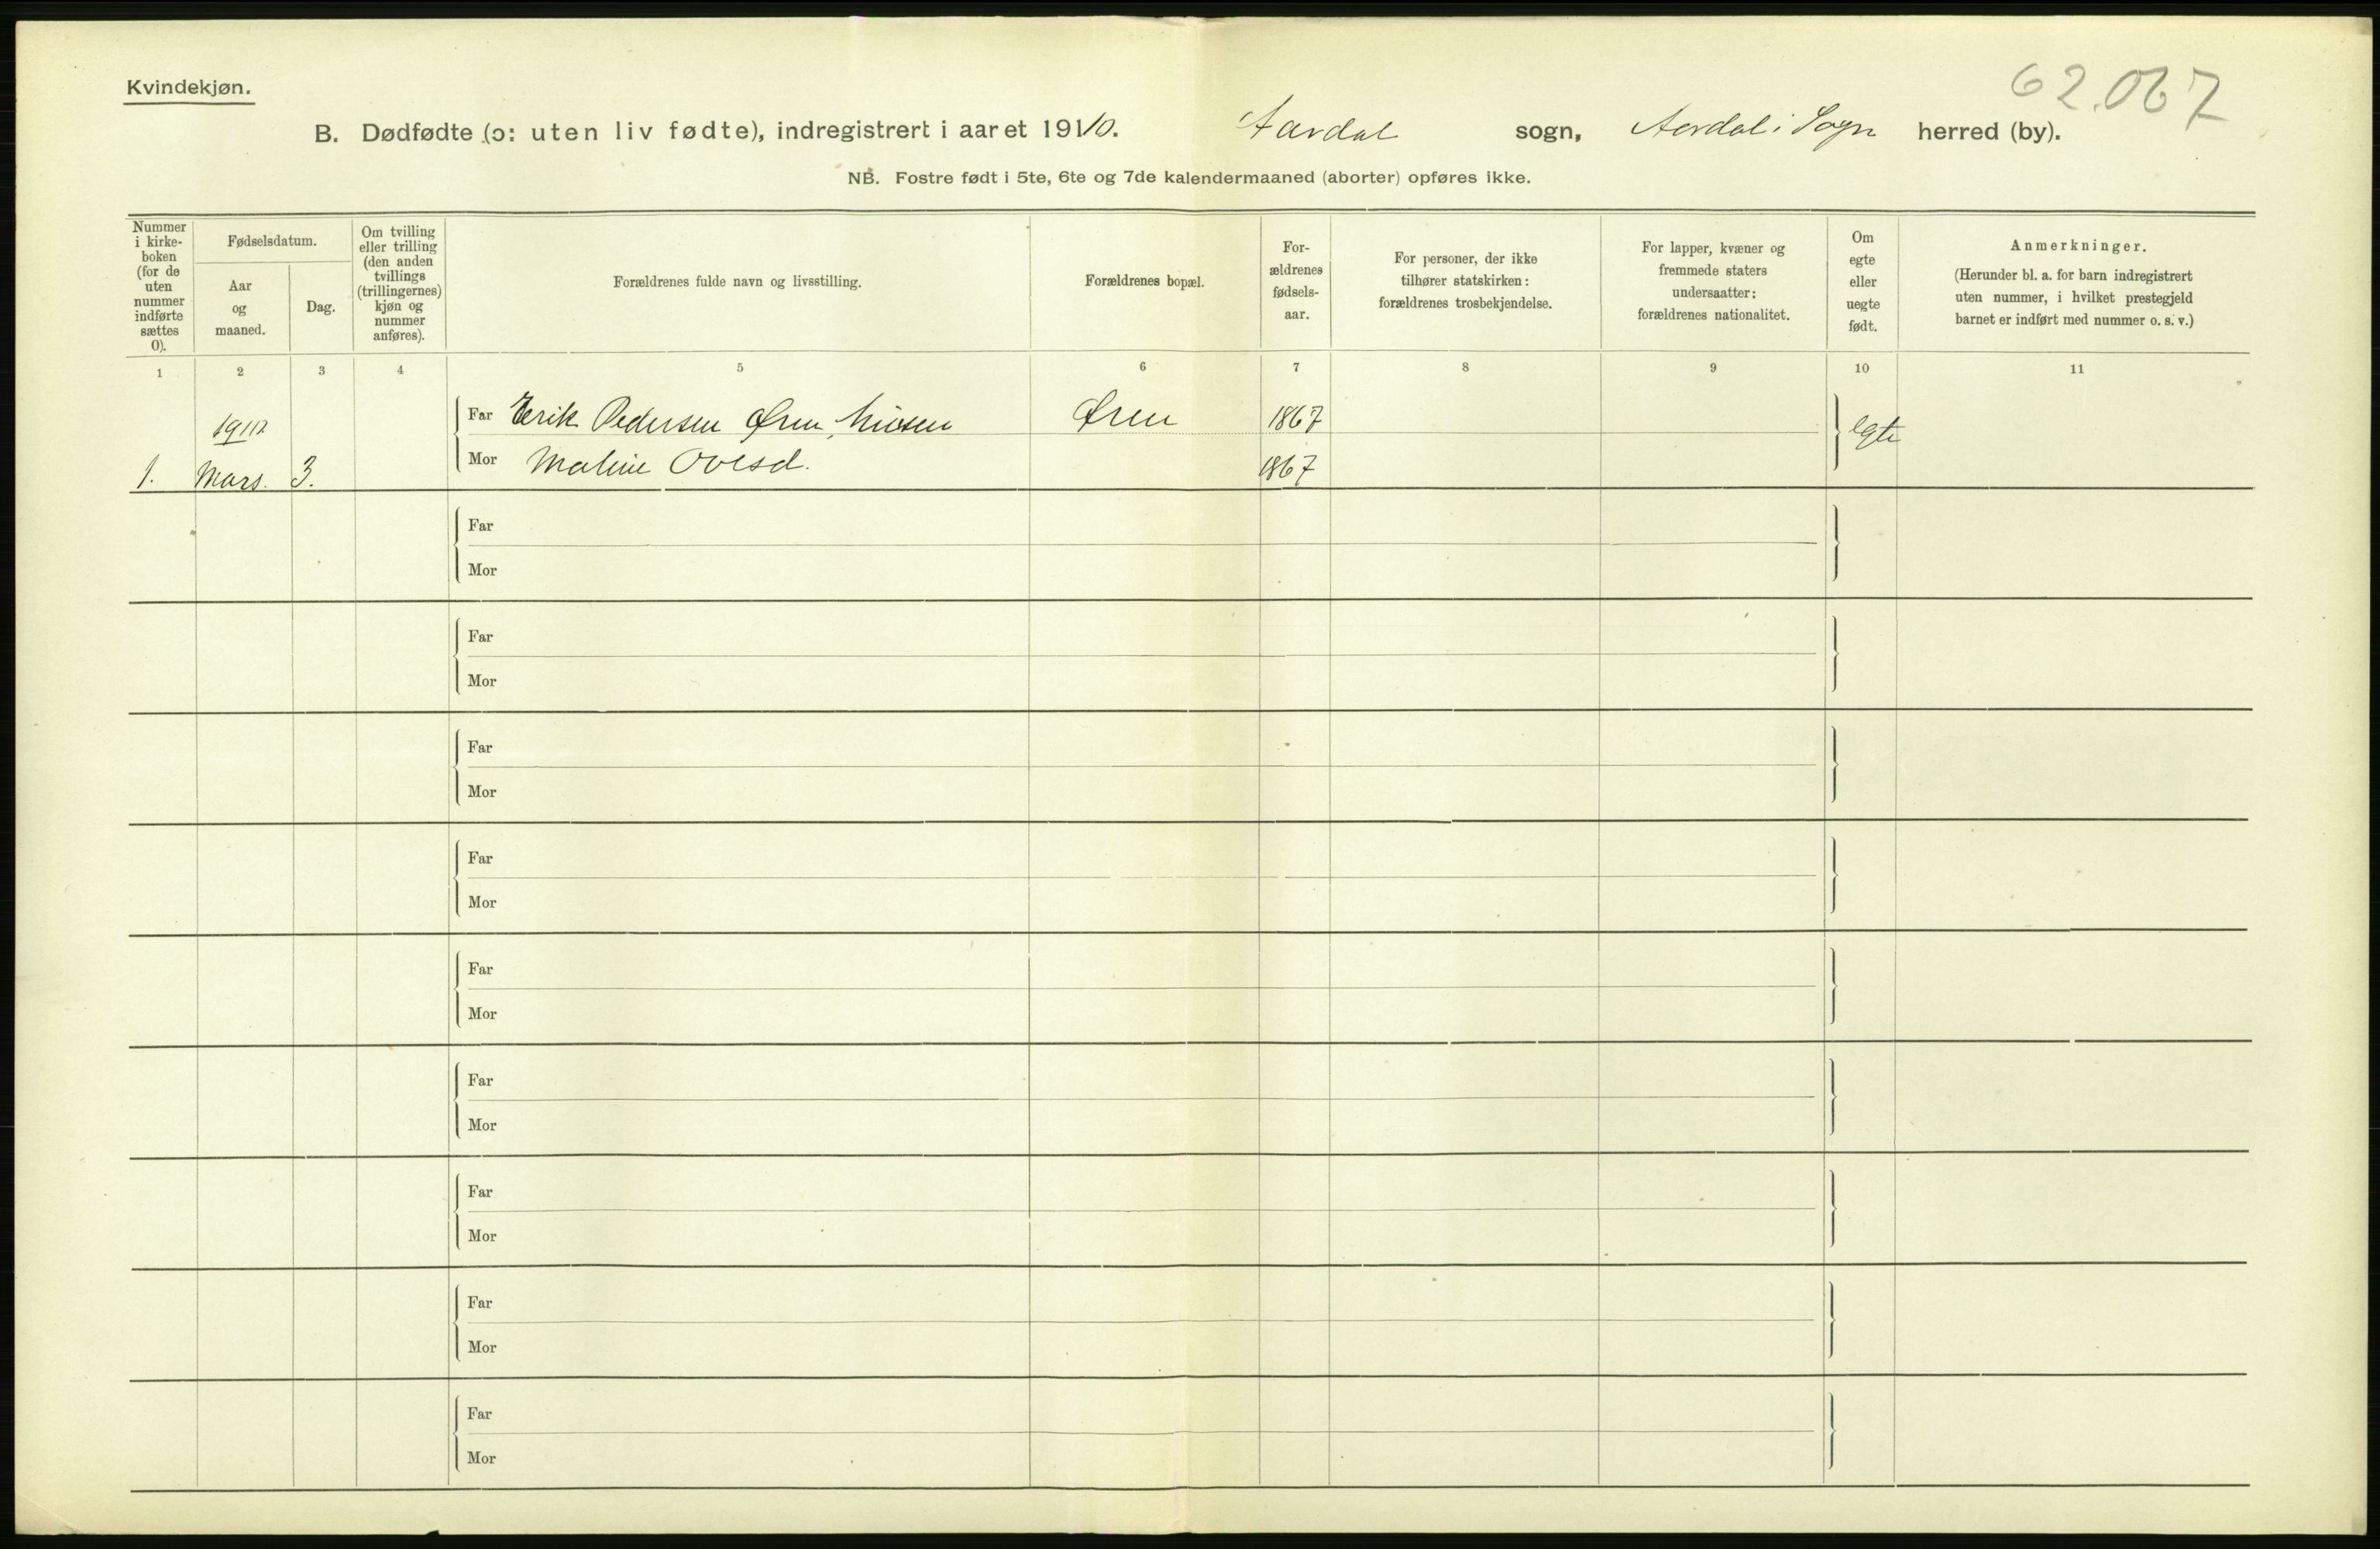 Kvindekjøn.
62.067
B. Dødfødte (ɔ: uten liv fødte), indregistrert i aaret 1910. Aardal sogn, Aardal i Sogn herred (by).
NB. Fostre født i 5te, 6te og 7de kalendermaaned (aborter) opføres ikke.
Nummer
i kirke-
boken
(for de
uten
nummer
indførte
sættes
0).
Fødselsdatum.
Aar
og
maaned.
Dag.
Om tvilling
eller trilling
(den anden
tvillings
(trillingernes)
kjøn og
nummer
anføres).
Forældrenes fulde navn og livsstilling.
Forældrenes bopæl.
For-
ældrenes
fødsels-
aar.
For personer, der ikke
tilhører statskirken:
forældrenes trosbekjendelse.
For lapper, kvæner og
fremmede staters
undersaatter:
forældrenes nationalitet.
Om
egte
eller
uegte
født.
Anmerkninger.
(Herunder bl. a. for barn indregistrert
uten nummer, i hvilket prestegjeld
barnet er indført med nummer o. s. v.)
1 2 3 4 5 6 7 8 9 10 11
Far Erik Pedersen Øren Øren 1867 Egte
1. Mars. 3. Mor Maline Ovesd. 1867
Far
Mor
Far
Mor
Far
Mor
Far
Mor
Far
Mor
Far
Mor
Far
Mor
Far
Mor
Far
Mor